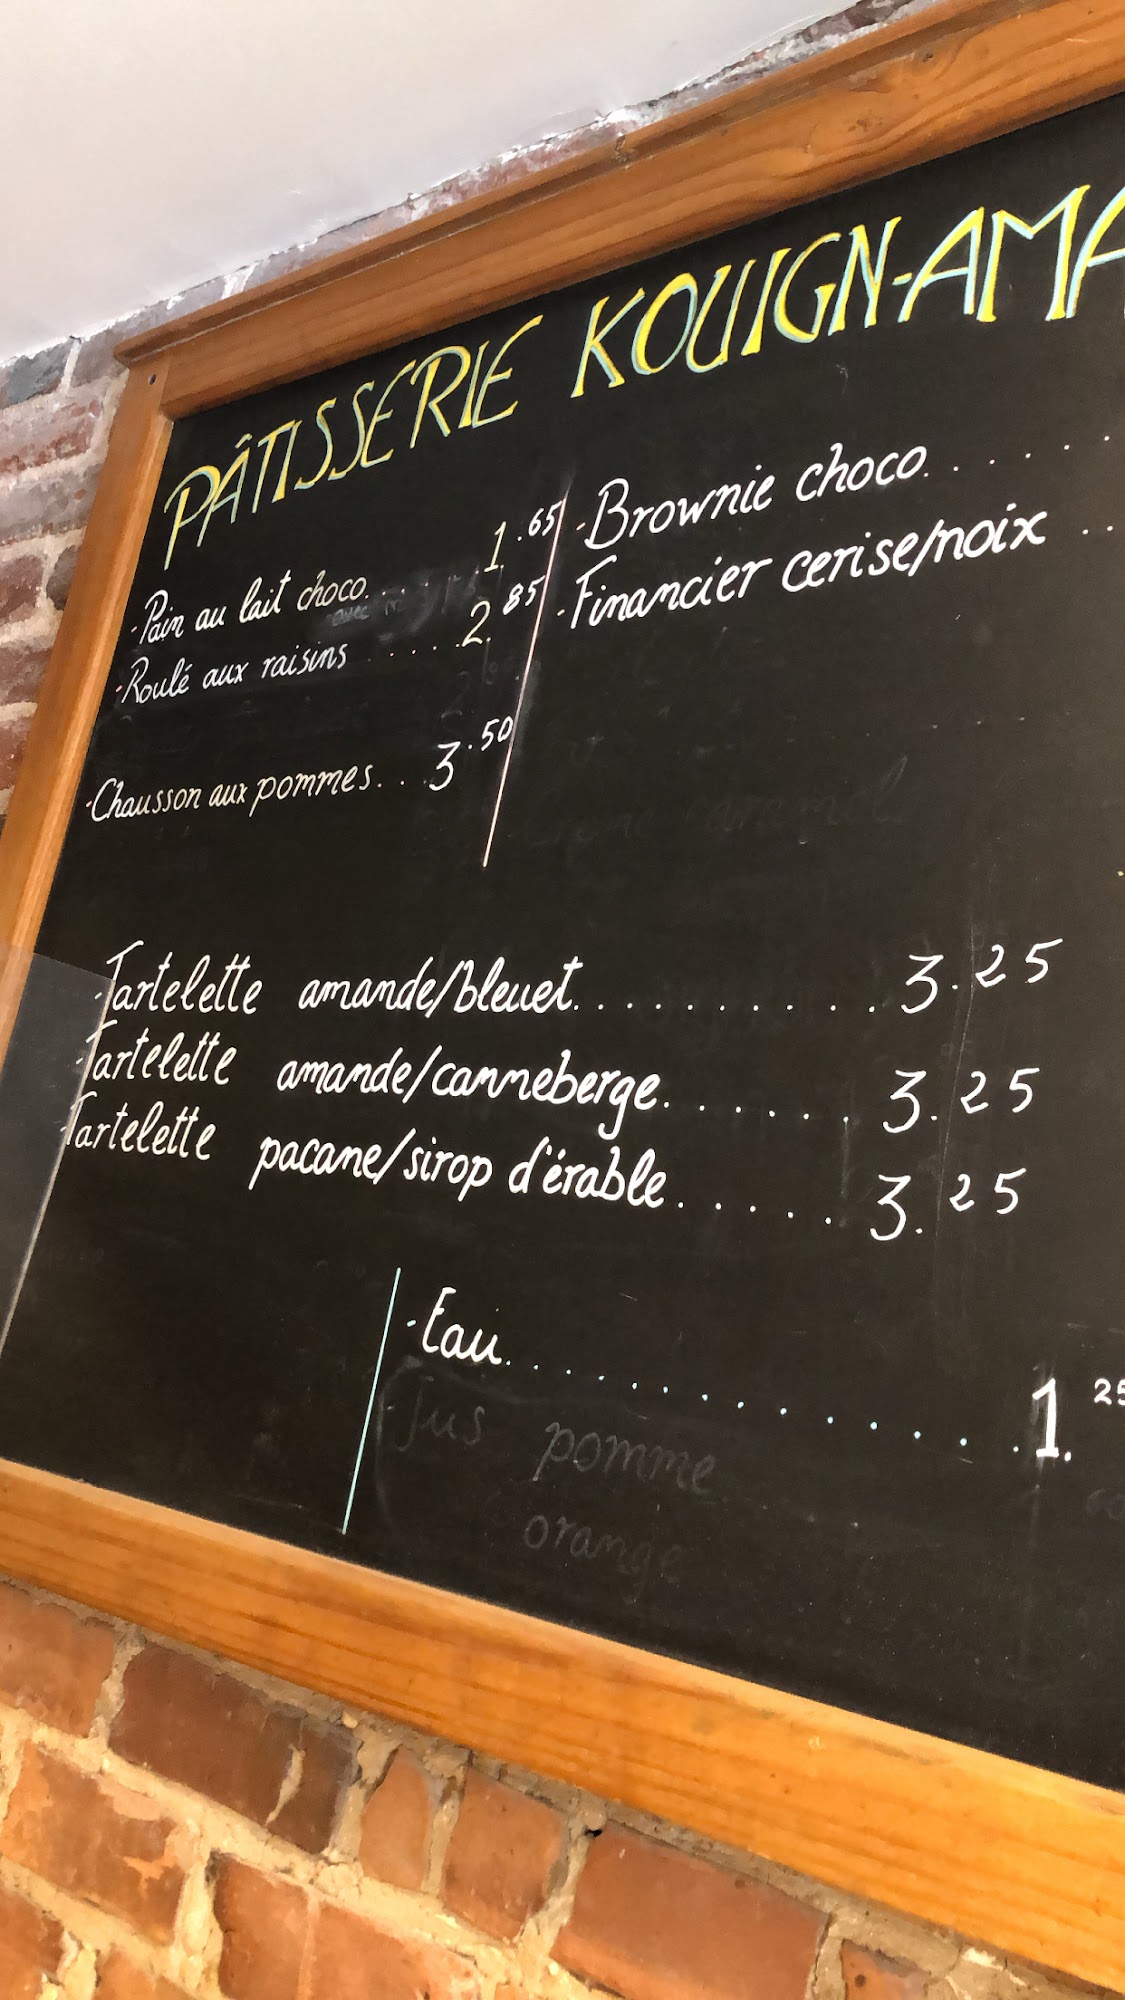 PÂTISSERIE KOUIGN-AMA
- Pain au lait choco..... 1.65
- Roulé aux raisins ..... 2.85
- Chausson aux pommes... 3.50
- Brownie choco......
- Financier cerise/noix ..
- Tartelette amande/bleuet.......... 3.25
- Tartelette amande/canneberge....... 3.25
- Tartelette pacane/sirop d'érable...... 3.25
- Eau............. 1.25
- Jus pomme
orange